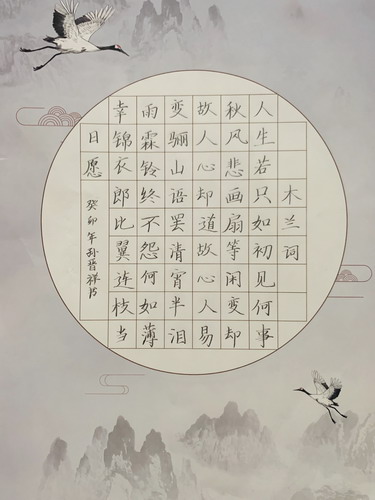 木兰词
人生若只如初见何事
秋风悲画扇等闲变却
故人心却道故心人易
变骊山语罢清宵半泪
雨霖铃终不怨何如薄
幸锦衣郎比翼连枝当
日愿
癸卯年孙晋祥书